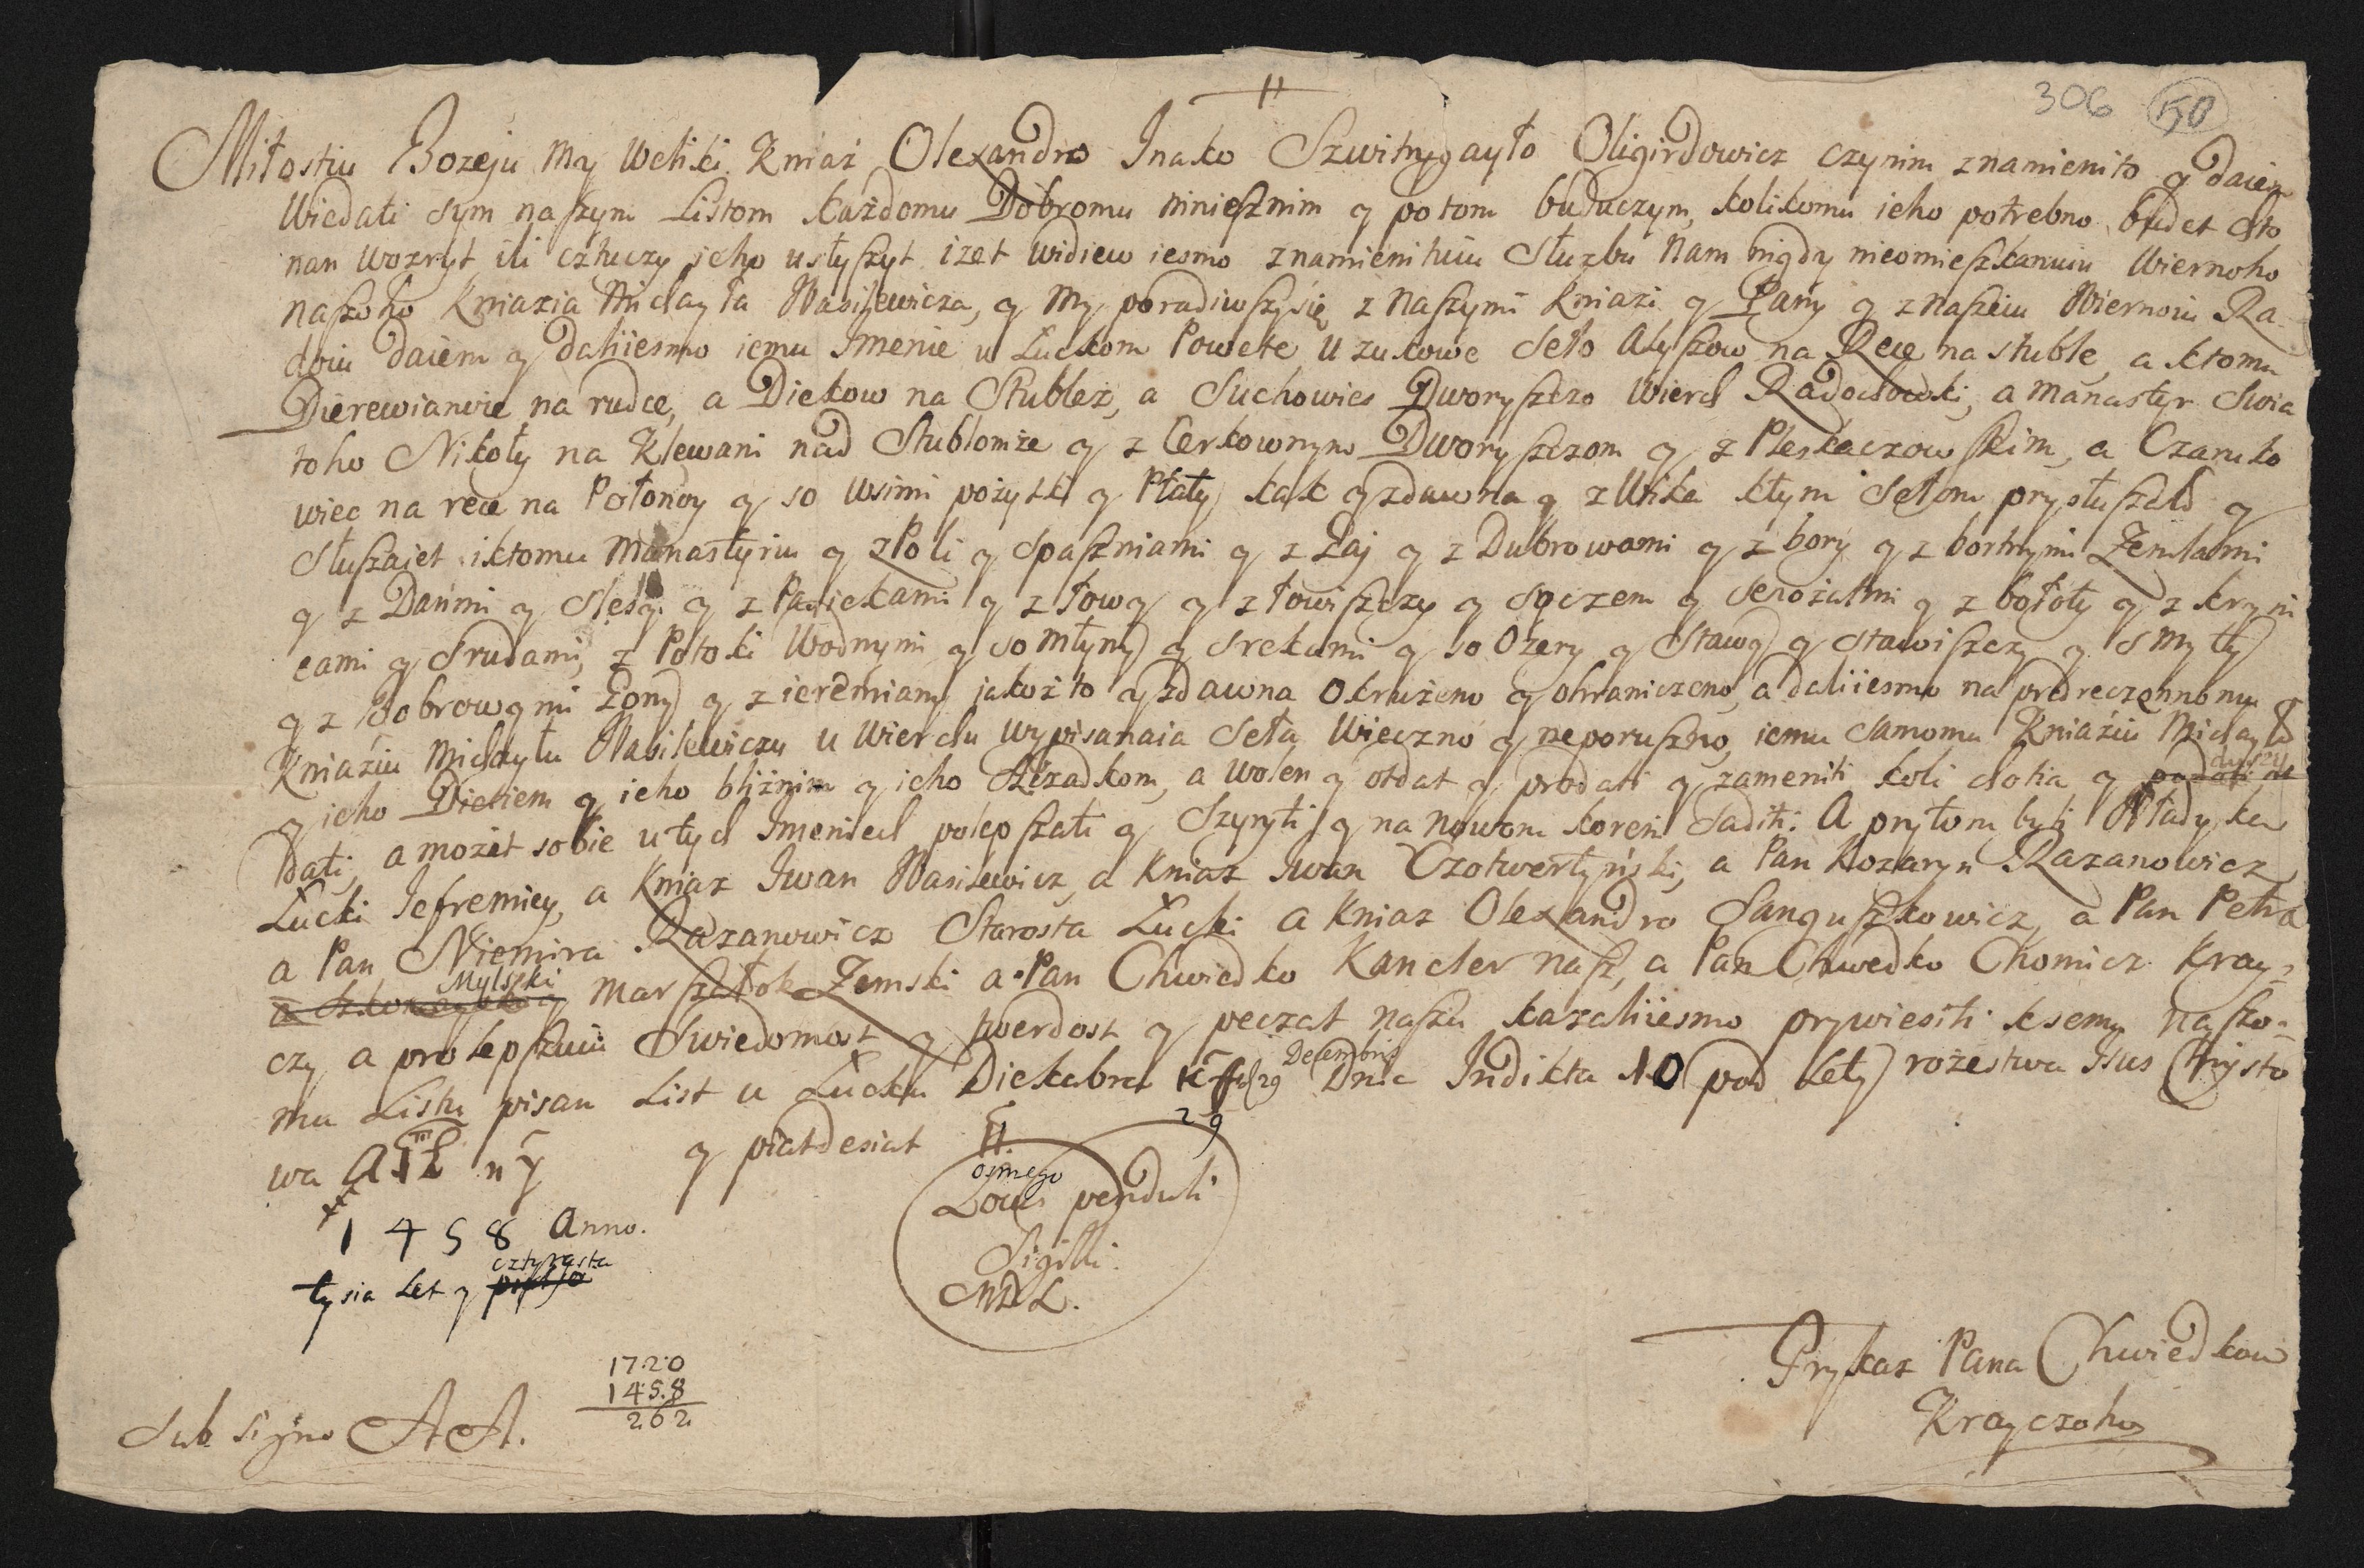 306 50
Miłostiu Bozeju My Weliki Kniaź Olexandro Inako Szwitrygayło Oligirdowicz czynim znamienito y daiem
Wiedati sym naszym Listom każdomu Dobromu nniesznim y potom buduczym, kolikomu jeho potrebno budet chto
nan wozryt ili cztuczy jeho usłyszyt izet widiew iesmo znamienituiu Słuzbu Nam nigdy nieomieszkanuiu Wiernoho
naszoho Kniazia Michayła Wasilewicza, y My poradiwszysię z Naszymi Kniazi y Pany y z naszeiu Wiernoiu Ra
doiu daiem y daliiesmo iemu Imenie u Łuckom Powete u zukowe Seło Alyszow na Rece na stuble, a ktomu
Dierewianoie na rudce, a Diekow na Stubley, a Suchowies Dworyszczo Wierch Radochowki, a Manastyr Swia
toho Nikoły na Klewani nad Stublomże y z Cerkownym Dworyszczom y z Pleskaczowskim, a Czaruko
wiec na rece na Połonoy y so Wsimi pożytki y Płaty kak yzdawna y z Wika ktym Sełom prysłuszało y
Słuszaiet iktomu Manastyriu y z Poli y spaszniami y z Gaj y z Dubrowami y z bory y z bortnymi Zemlami
y z Dańmi y slesy y z Pasiekami y z łowy y z łowiszczy y syczem y senożatmi y z bołoty y z kryni
cami y srudami, z Potoki Wodnymi y so Młyny y srekami y so Ozery y Stawy y stawiszczy y s myty
y z bobrowymi Gony y z ieremiany jakoż to yzdawna okrużeno y ohraniczeno, a daliiesmo na predreczennomu
Kniaziu Michayłu Wasilewiczu u Wierchu wypisanaia Seła Wieczno y neporuszno, iemu Samomu Kniaziu Michayłu
y jeho Dietiem y jeho bliżnim y jeho Szczadkom, a wolen y otdat y prodati y zameniti koli chotia y duszy
dati, a możet sobie u tych Imeniech polepszati y Szyryti y na nowom koreni Saditi: A prytom byli Władyka
Łucki Jefremiey, a Kniaz Iwan Wasilewicz a Kniaz Iwan Czotwertyński, a Pan Kozaryn Razanowicz
a Pan Niemira Razanowicz Starosta Łucki a Kniaz Olexandro Sanguszkowicz, a Pan Petra
Mylszki Marszałok Zemski a Pan Chwiedko Kancler nasz, a Pan Chwedko Chomicz Kray=
czy a prolepszuiu Swiedomost y twerdost y peczat naszu kazaliiesmo prywiesiti ksemu naszo=
mu Listu pisan List u Łucku Diekabra 29 Decembris Dnia Indikta 10 pod Lety rożestwa Isus Chrysto
29
wa y piatdesiat
osmego
1 4 5 8 Anno.
cztyrasta
tysia Let y
Locus penduli
Sigilli
MDL.
1720
1458
262
Sub signo AA.
Prykaz Pana Chwiedkow
Krayczoho